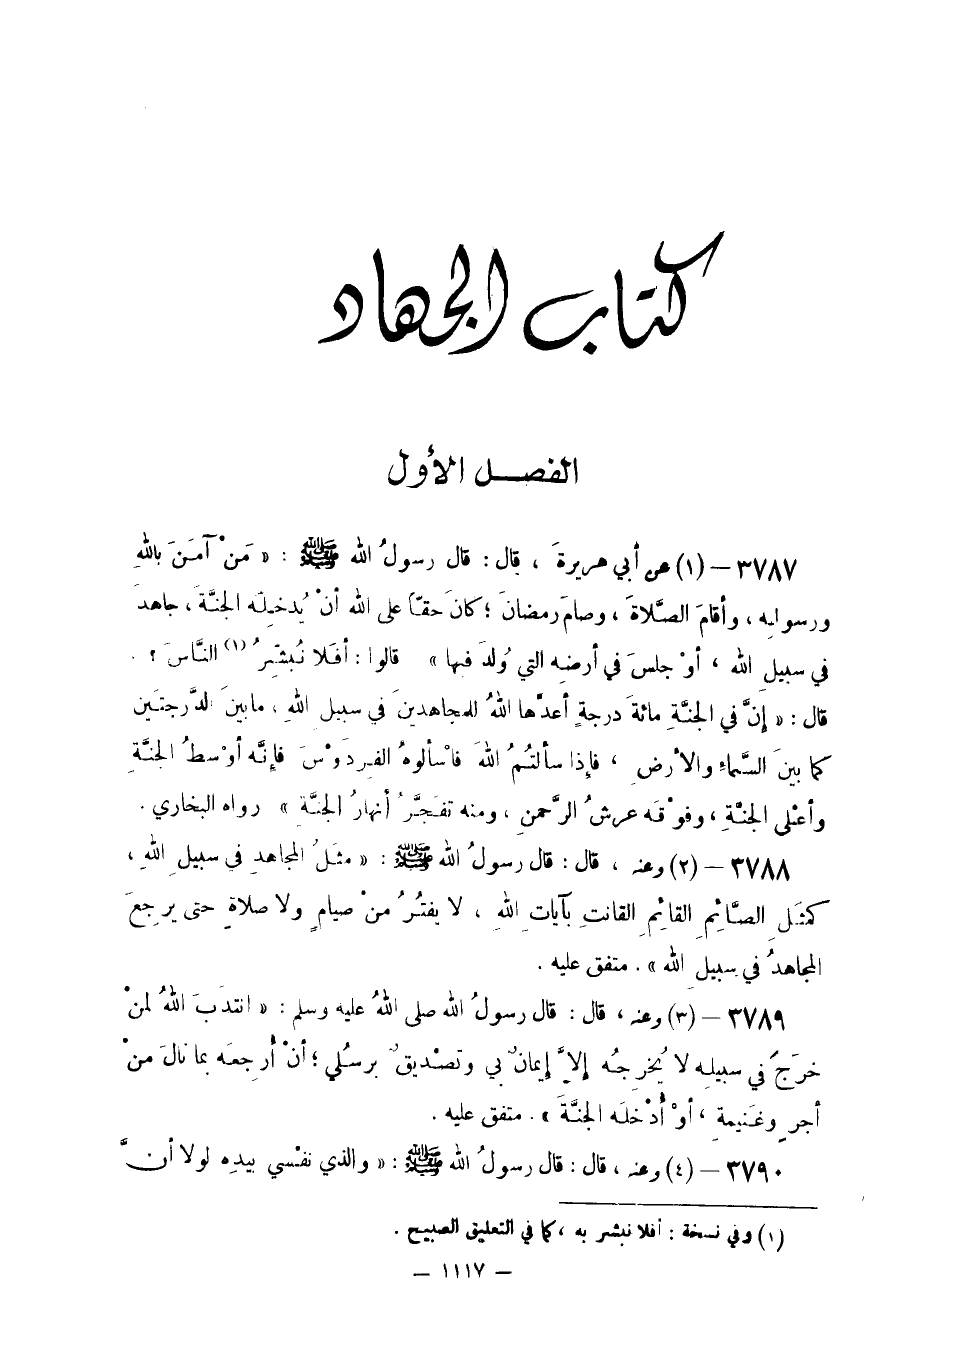 كتاب الجهاد
الفصل الأول
٣٧٨٧ – (١) عن أبي هريرةَ ، قال : قال رسولُ الله ﷺ : « مَنْ آمَنَ باللهِ
ورسولِه ، وأقامَ الصَّلاةَ ، وصامَ رمضانَ ؛ كانَ حقّاً على الله أنْ يُدخِلَه الجنَّةَ ، جاهدَ
في سبيلِ الله ، أوْ جلسَ في أرضِه التي وُلدَ فيها » قالوا : أفَلا نُبشِّرُ (١) النَّاسَ ؟ .
قال : « إنَّ في الجنَّةِ مائةَ درجةٍ أعدَّها اللهُ للمجاهدينَ في سبيلِ اللهِ ، مابينَ الدَّرجتَين
كما بينَ السَّماءِ والأرضِ ، فإِذا سألتُمُ اللهَ فاسْألوهُ الفِردَوْسَ فإنَّه أوْسطُ الجنَّةِ
وأعْلى الجنَّةِ ، وفوْقَه عرشُ الرَّحمنِ ، ومنه تفَجَّرُ أنهارُ الجنَّةِ » رواه البخاري .
٣٧٨٨ – (٢) وعنه ، قال : قال رسولُ الله ﷺ : « مثَلُ المجاهدِ في سبيلِ اللهِ ،
كمثَلِ الصَّائِمِ القائِمِ القانتِ بآياتِ اللهِ ، لا يفتُرُ منْ صيامٍ ولا صلاةٍ حتى يرجعَ
المجاهدُ في سبيلِ الله » . متفق عليه .
٣٧٨٩ – (٣) وعنه ، قال : قال رسولُ الله صلى اللهُ عليه وسلم : « انتدَبَ اللهُ لمنْ
خرَجَ في سبيلِه لا يُخرِجُه إلاَّ إيمانٌ بي وتصْديقٌ برسُلي ؛ أنْ أُرجِعَه بما نالَ منْ
أجرٍ وغَنيمةٍ ، أوْ أُدْخلَه الجنَّةَ » . متفق عليه .
٣٧٩٠ – (٤) وعنه ، قال : قال رسولُ الله ﷺ : « والذي نفْسي بيدِه لولا أنَّ
(١) وفي نسخة : أفلا نبشر به ، كما في التعليق الصبيح .
– ١١١٧ –